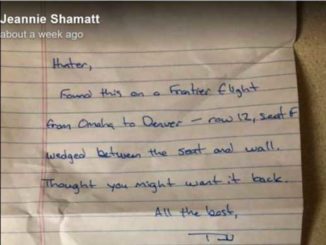 Jeannie Shamatt
about a week ago
Hunter,
Found this on a Frontier flight
from Omaha to Denver – row 12, seat F
wedged between the seat and wall.
Thought you might want it back.
All the best,